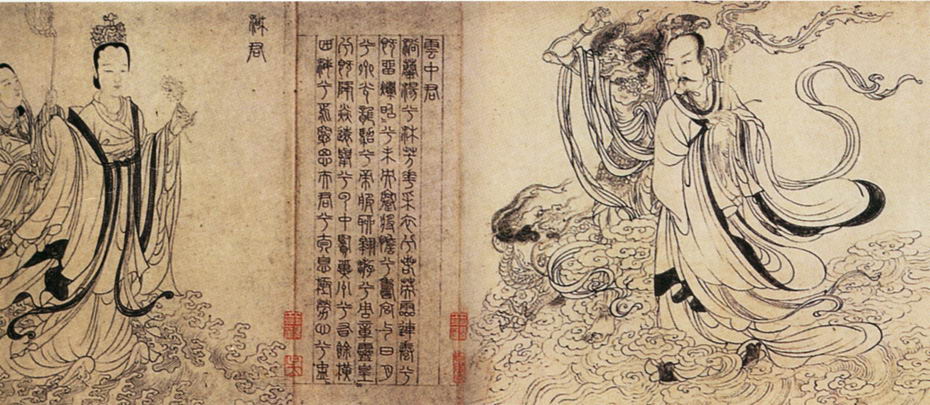 雲中君
浴蘭湯兮沐芳華采衣兮若英靈連蜷兮
既留爛昭昭兮未央蹇將憺兮壽宮與日月
兮齊光龍駕兮帝服聊翱遊兮周章靈皇皇
兮既降猋遠舉兮雲中覽冀州兮有餘橫
四海兮焉窮思夫君兮太息極勞心兮忡忡
湘君